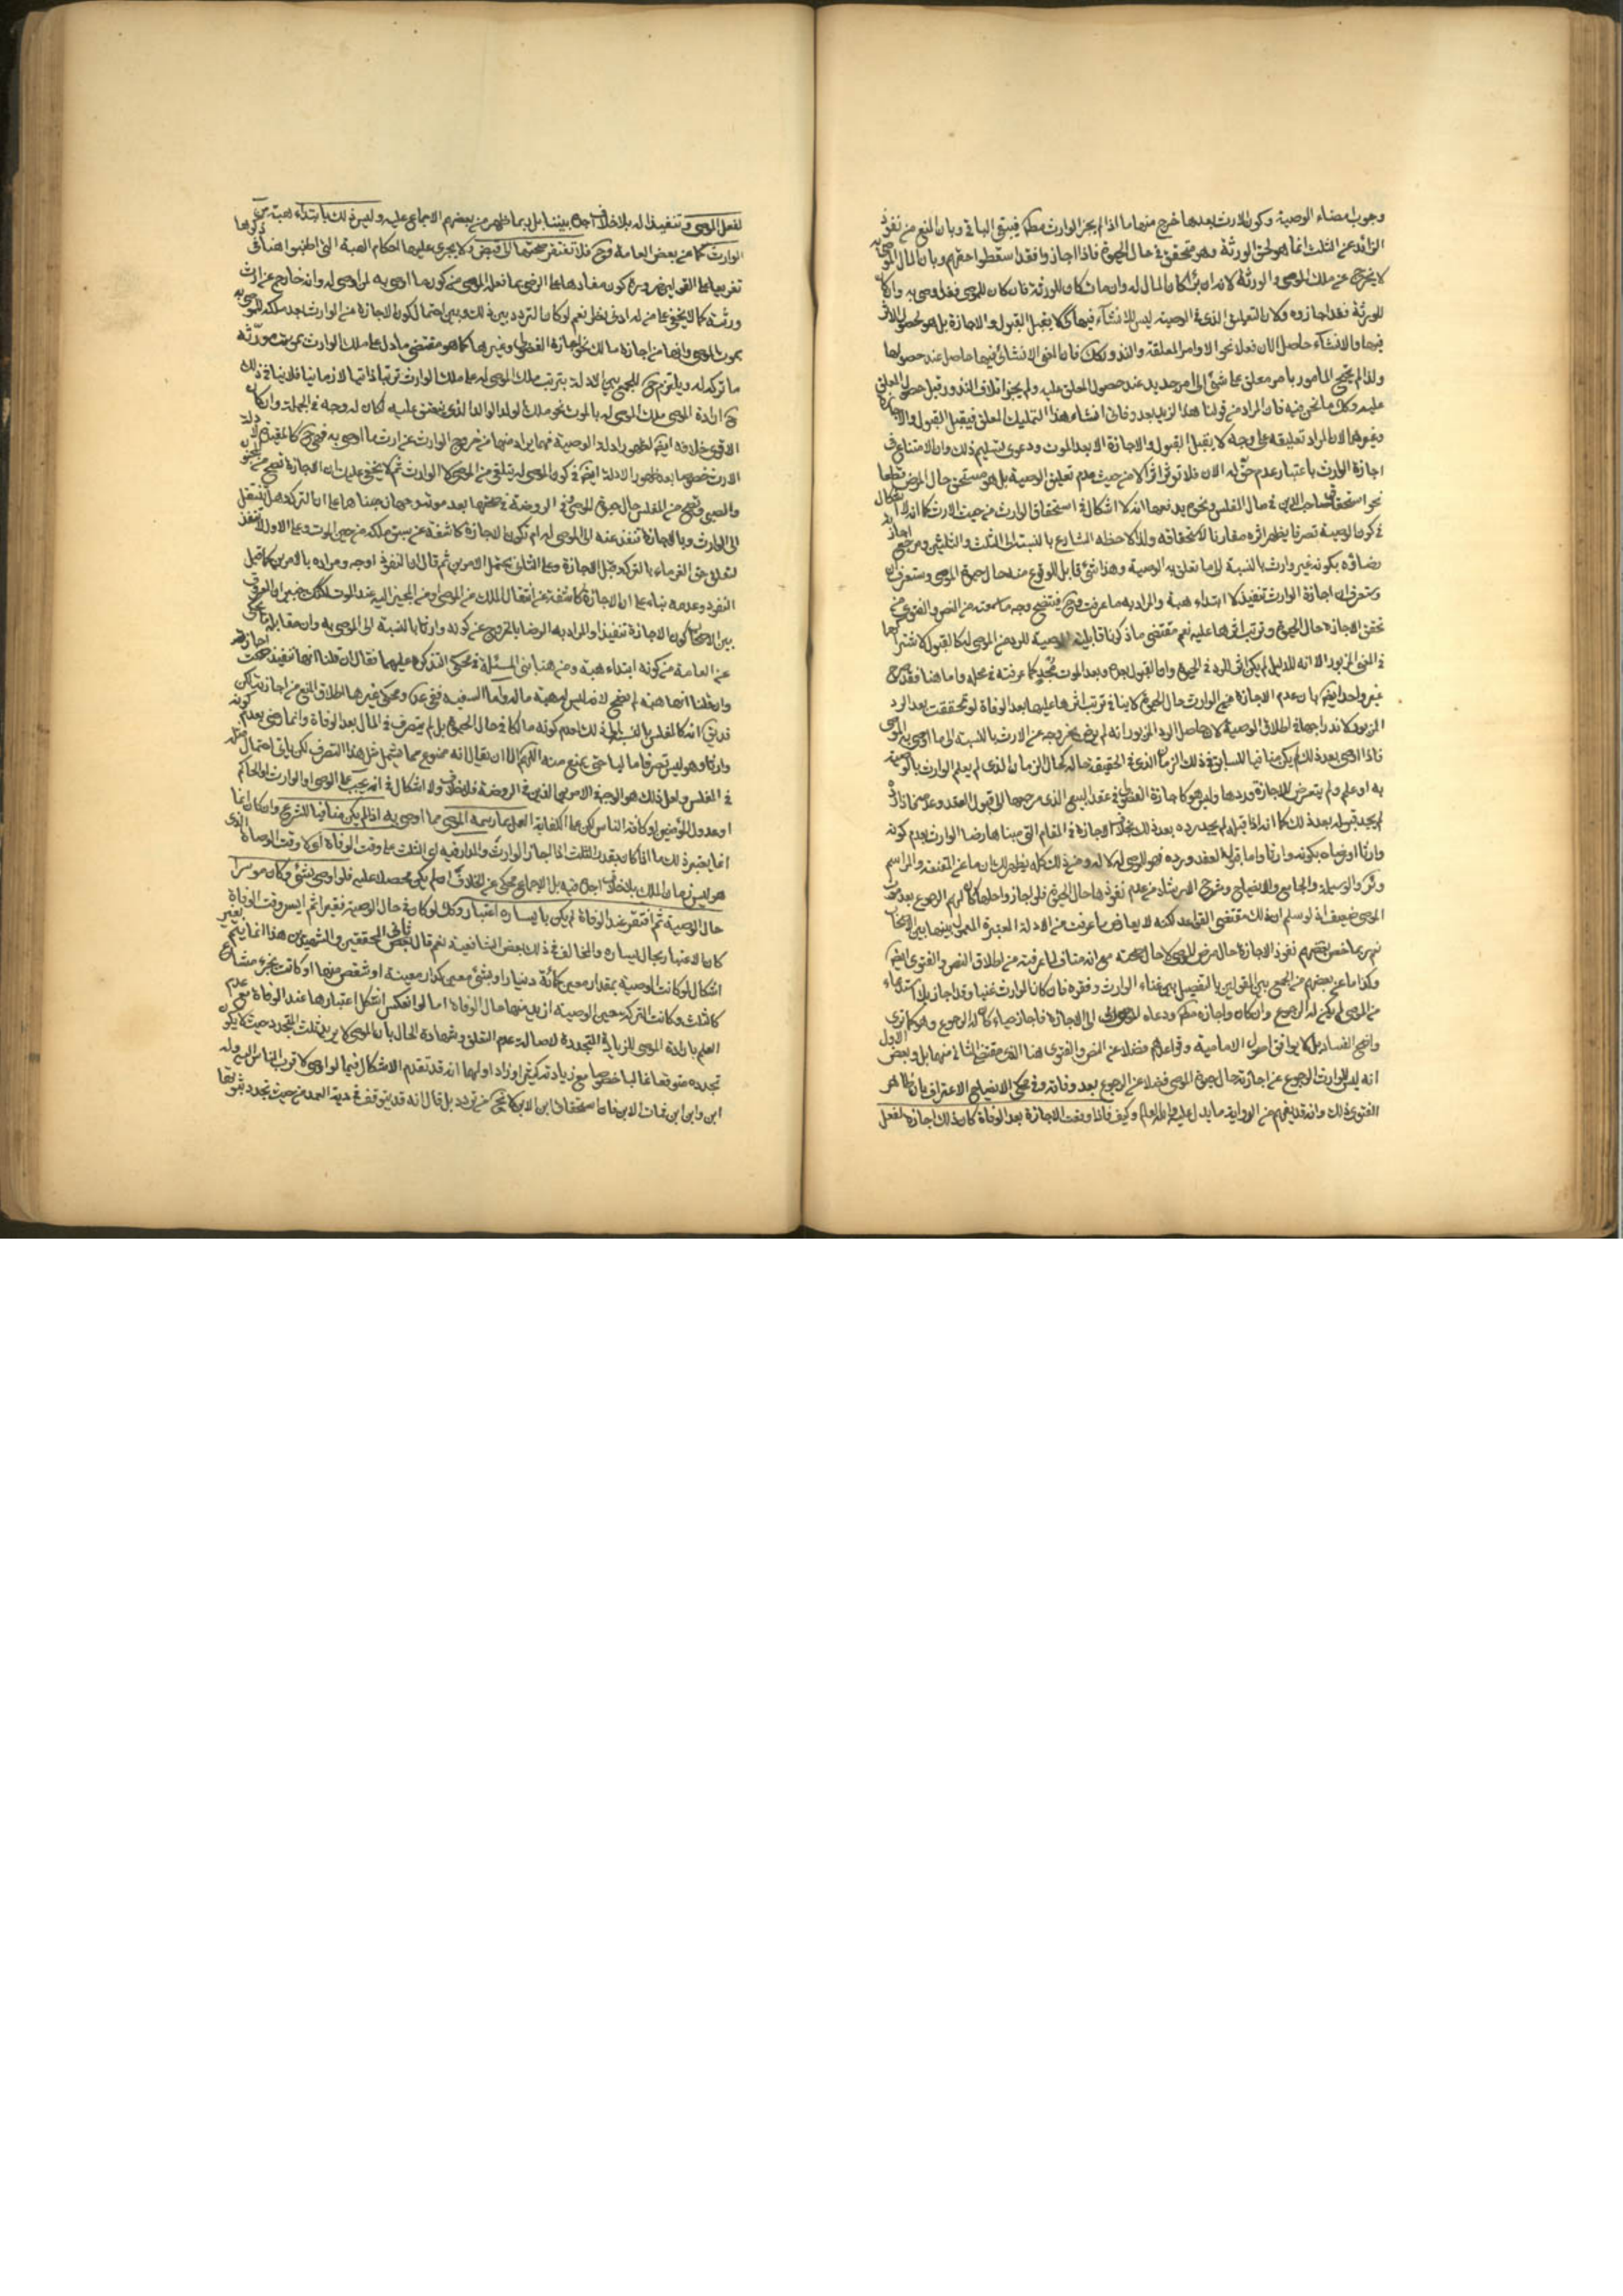 وجوب امضاء الوصية وكون الارث بعدها خرج منهما ما اذا لم يجز الوارث مطلقا فيبقى الباقى وبان المنع من نفوذ
الزائد عن الثلث انما هو لحق الورثة وهو متحقق فى حال الحيوة فاذا اجاز وافقد اسقطوا حقهم وبان المال الموصى به
لا يخرج عن ملك الموصى والورثة لانه ان برئ كان المال له وان مات كان للورثة فان كان للموصى فقد اوصى به وان كان
للورثة فقد اجازوه ولان التعليق الذى فى الوصية ليس للانشآء فيها كى لا يقبل القبول والاجازة بل هو لحصول الاثر
فيها والانشآء حاصل الان فعلا نحو الاوامر المعلقة والنذور كك فان المعنى الانشائى فيها حاصل عند حصولها
ولذا لم يحتج المأمور بامر معلق على شئ الى امر جديد عند حصول المعلق عليه ولم يجز اتلاف النذور قبل حصول المعلق
عليه وكك ما نحن فيه فان المراد من قولنا هذا لزيد بعد وفاتى انشاء هذا التمليك المعلق فيقبل القبول والاجازة
ونحوهما الان لا المراد تعليقه على وجه لا يقبل القبول والاجازة الا بعد الموت ودعوى تسليم ذلك وان الامتناع فى
اجازة الوارث باعتبار عدم حق له الان فلا تؤثر اثرا لا من حيث عدم تعليق الوصية بل هو مستحق حال المرض قطعا
نحو استحقاق صاحب الدين فى مال المفلس ونحوه يدفعها انه لا اشكال فى استحقاق الوارث من حيث الارث كما انه لا اشكال
فى كون الوصية تصرفا يظهر اثره مقارنا لاستحقاقه ولذا لاحظه الشارع بالنسبة الى الثلث والثلثين ومرجع اجازته
رضاؤه بكونه غير وارث بالنسبة الى ما تعلق به الوصية وهذا شئ قابل للوقوع منه حال حيوة الموصى وستعرف ان
وستعرف ان اجازة الوارث تنفيذ لا ابتداء هبة والمراد به ما عرفت وح فيتضح وجه ما سمعته من النص والفتوى من
تحقق الاجازة حال الحيوة وترتب اثرها عليه نعم مقتضى ما ذكرنا قابلية الوصية للرد من الموصى له كالقبول لاشتراكهما
فى المعنى المزبور الا انه للدليل لم يكن اثر للرد فى الحيوة وان القبول بعده وبعد الموت مجد كما عرفته فى محله واما هنا فقد صرح
غير واحد ايضا بان عدم الاجازة من الوارث حال الحيوة لا ينافى ترتب اثرها عليها بعد الوفاة لو تحققت بعد الرد
المزبور لاندراجها فى اطلاق الوصية لان حاصل الرد المزبور انه لم يرض بخروجه عن الارث بالنسبة الى ما اوصى به الموصى
فاذا رضى بعد ذلك لم يكن منافيا للسابق فى ذلك الزمان الذى فى الحقيقة حاله كحال الزمان الذى لم يعلم الوارث بالوصية
به او علم ولم يتعرض للاجازة وردها وليس هو كاجازة الفضولى فى عقد البيع الذى مرجعها الى قبول العقد وعدمه فاذا رد
لم يجد قبوله بعد ذلك كما انه اذا قبله لم يجد رده بعد ذلك بخلاف الاجازة فى المقام التى مبناها رضا الوارث بعدم كونه
وارثا او رضاه بكونه وارثا واما قبول العقد ورده فهو للموصى له لا له ومن ذلك كله يظهر لك ان ما عن المقنعة والمراسم
وئر والوسيلة والجامع والايضاح وشرح الارشاد من عدم نفوذها حال الحيوة فلو اجاز واحدها كان لهم الرجوع بعد موت
الموصى ضعيف اذ لو سلم ان ذلك مقتضى القواعد لكنه لا يعارض ما عرفت من الادلة المعتبرة المعمول بينها بين الاصحاب
نعم ربما خص بعضهم نفوذ الاجازة حال مرض الموصى لا حال صحته مع انه مناف لما عرفته من اطلاق النص والفتوى ايضا
وكذا ما عن بعضهم من الجمع بين القولين بالتفصيل بين غناء الوارث وفقره فان كان الوارث غنيا وقد اجاز بلا استدعاء
من الموصى لم يكن له الرجوع وان كان واجازه مطلقا ودعاه الموصى الى الاجازة فاجاز حياء كان له الرجوع وهو كما ترى
واضح الفساد بل لا يوافق اصول الامامية وقواعدهم فضلا عن النص والفتوى هنا الذى مقتضى الثانى منهما بل وبعض الاول
انه ليس للوارث الرجوع عن اجازته حال حيوة الموصى فضلا عن الرجوع بعد وفاته وفى محكى الايضاح الاعتراف بان ظاهر
الفتوى ذلك وانه قد يفهم من الرواية ما يدل عليه والله العالم وكيف كان فاذا وقعت الاجازة بعد الوفاة كان ذلك اجازة لفعل
لفعل الموصى وتنفيذا له بلا خلاف اجده بيننا بل ربما ظهر من بعضهم الاجماع عليه وليس ذلك بابتداء هبة من
الوارث كما عن بعض العامة وح فلا تفتقر صحتها الى قبض ولا يجرى عليها احكام الهبة التى اطنبوا هنا فى ذكرها
تفريعا على القولين ضرورة كون مفادها على الرضى بما فعله الموصى من كون ما اوصى به لمن اوصى له وانه خارج عن ارث
ورثته كما لا يخفى على من له ادنى نظر نعم لو كان التردد بين ذلك وبين احتمال كون الاجازة من الوارث بعد ملكه للموصى به
بموت الموصى وانها من اجازة مالك نحو اجازة الفضولى وغيرها كما هو مقتضى ما دل على ملك الوارث بموت مورثه
ما تركه له ويلتزم ح للجمع بين الادلة بترتب ملك الموصى له على ملك الوارث ترتبا ذاتيا لا زمانيا فلا ينافى ذلك
ح ارادة الموصى ملك الموصى له بالموت نحو ملك الولد الوالد الذى ينعتق عليه لكان له وجه فى الجملة وان كان
الاقوى خلافه ايضا لظهور ادلة الوصية فيما يراد منها من خروج الوارث عن ارث ما اوصى به فهى ح كالمقيدة لادلة
الارث خصوصا بعد ظهور الادلة ايضا فى كون الموصى له يتلقى من الموصى لا الوارث ثم لا يخفى عليك ان الاجازة تصح من
والصبى وتصح من المفلس حال حيوة الموصى وفى الروضة فى صحتها بعد موته وجهان مبناهما على ان التركة هل تنتقل
الى الوارث وبالاجازة تنتقل عنه الى الموصى له ام تكون الاجازة كاشفة عن سبق ملكه من حين الموت وعلى الاول لا تنفذ
لتعلق حق الغرماء بالتركة قبل الاجازة وعلى الثانى يحتمل الامرين ثم قال ان النفوذ اوجه ومراده بالامرين كما قيل
النفوذ وعدمه بناء على ان الاجازة كاشفة عن انتقال الملك من الموصى او من المجيز اليه عند الموت لكنك خبير ان المعروف
بين الاصحاب كون الاجازة تنفيذا والمراد به الرضا بالخروج عن كونه وارثا بالنسبة الى الموصى به وان مقابله ما يحكى
عن العامة من كونه ابتداء هبة ومن هنا بنى المسئلة فى محكى التذكرة عليهما فقال ان قلنا انها تنفيذ صحت اجازته
وان قلنا انها هبة لم تصح لانه ليس له هبة ماله واما السفيه ففى عد ومحكى غيرها اطلاق المنع من اجازته لكن
قد يق انه كالمفلس بالنسبة الى ذلك لعدم كونه مالكا فى حال الحيوة بل لم يتصرف فى المال بعد الوفاة وانما رضى بعدم كونه
وارثا وهو ليس تصرفا ماليا حتى يمنع منه اللهم الا ان يقال انه ممنوع مما يشمل مثل هذا التصرف لكن يأتى احتمال مثله
فى المفلس ولعل ذلك هو الوجه فى الامرين الذين فى الروضة فلاحظ ولا اشكال فى انه يجب على الوصى او الوارث او الحاكم
او عدول المؤمنين او كافة الناس لكن على الكفاية العمل بما رسمه الموصى مما اوصى به اذا لم يكن منافيا للشرع وان كان انما
انما يعتبر ذلك ما اذا كان بقدر الثلث اذا اجاز الوارث والمدار فيه اى الثلث على وقت الوفاة اى لا وقت الوصاة الذى
هو ليس زمان الملك بلا خلاف اجده فيه بل الاجماع محكى عن الخلاف اذ لم يكن محصلا عليه فلو اوصى بشئ وكان موسرا
حال الوصية ثم افتقر عند الوفاة لم يكن بايساره اعتبار وكك لو كان فى حال الوصية فقيرا ثم ايسر وقت الوفاة
كان الاعتبار بحال ايساره والمخالف فى ذلك بعض الشافعية نعم قال ثانى المحققين والشهيدين ان هذا انما يتم بغير
اشكال لو كانت الوصية بمقدار معين كمائة دينار او بشئ معين كدار معينة او شقص منها او كانت بجزء مشاع
كالثلث وكانت التركة حين الوصية ازيد منها حال الوفاة اما لو انعكس اشكل اعتبارها عند الوفاة مع عدم
العلم بارادة الموصى للزيادة المتجددة لاصالة عدم التعلق وشهادة الحال بان الموصى لا يريد ثلث المتجدد حيث لا يكون
تجدده متوقعا غالبا خصوصا مع زيادته كثيرا وزاد اولهما انه قد تقدم الاشكال فيما لو اوصى لاقرب الناس اليه وله
ابن وابن ابن فمات الابن فان استحقاق ابن الابن لا يخ من تردد بل قال انه قد يتوقف فى دية العمد من حيث تجدد ثبوتها